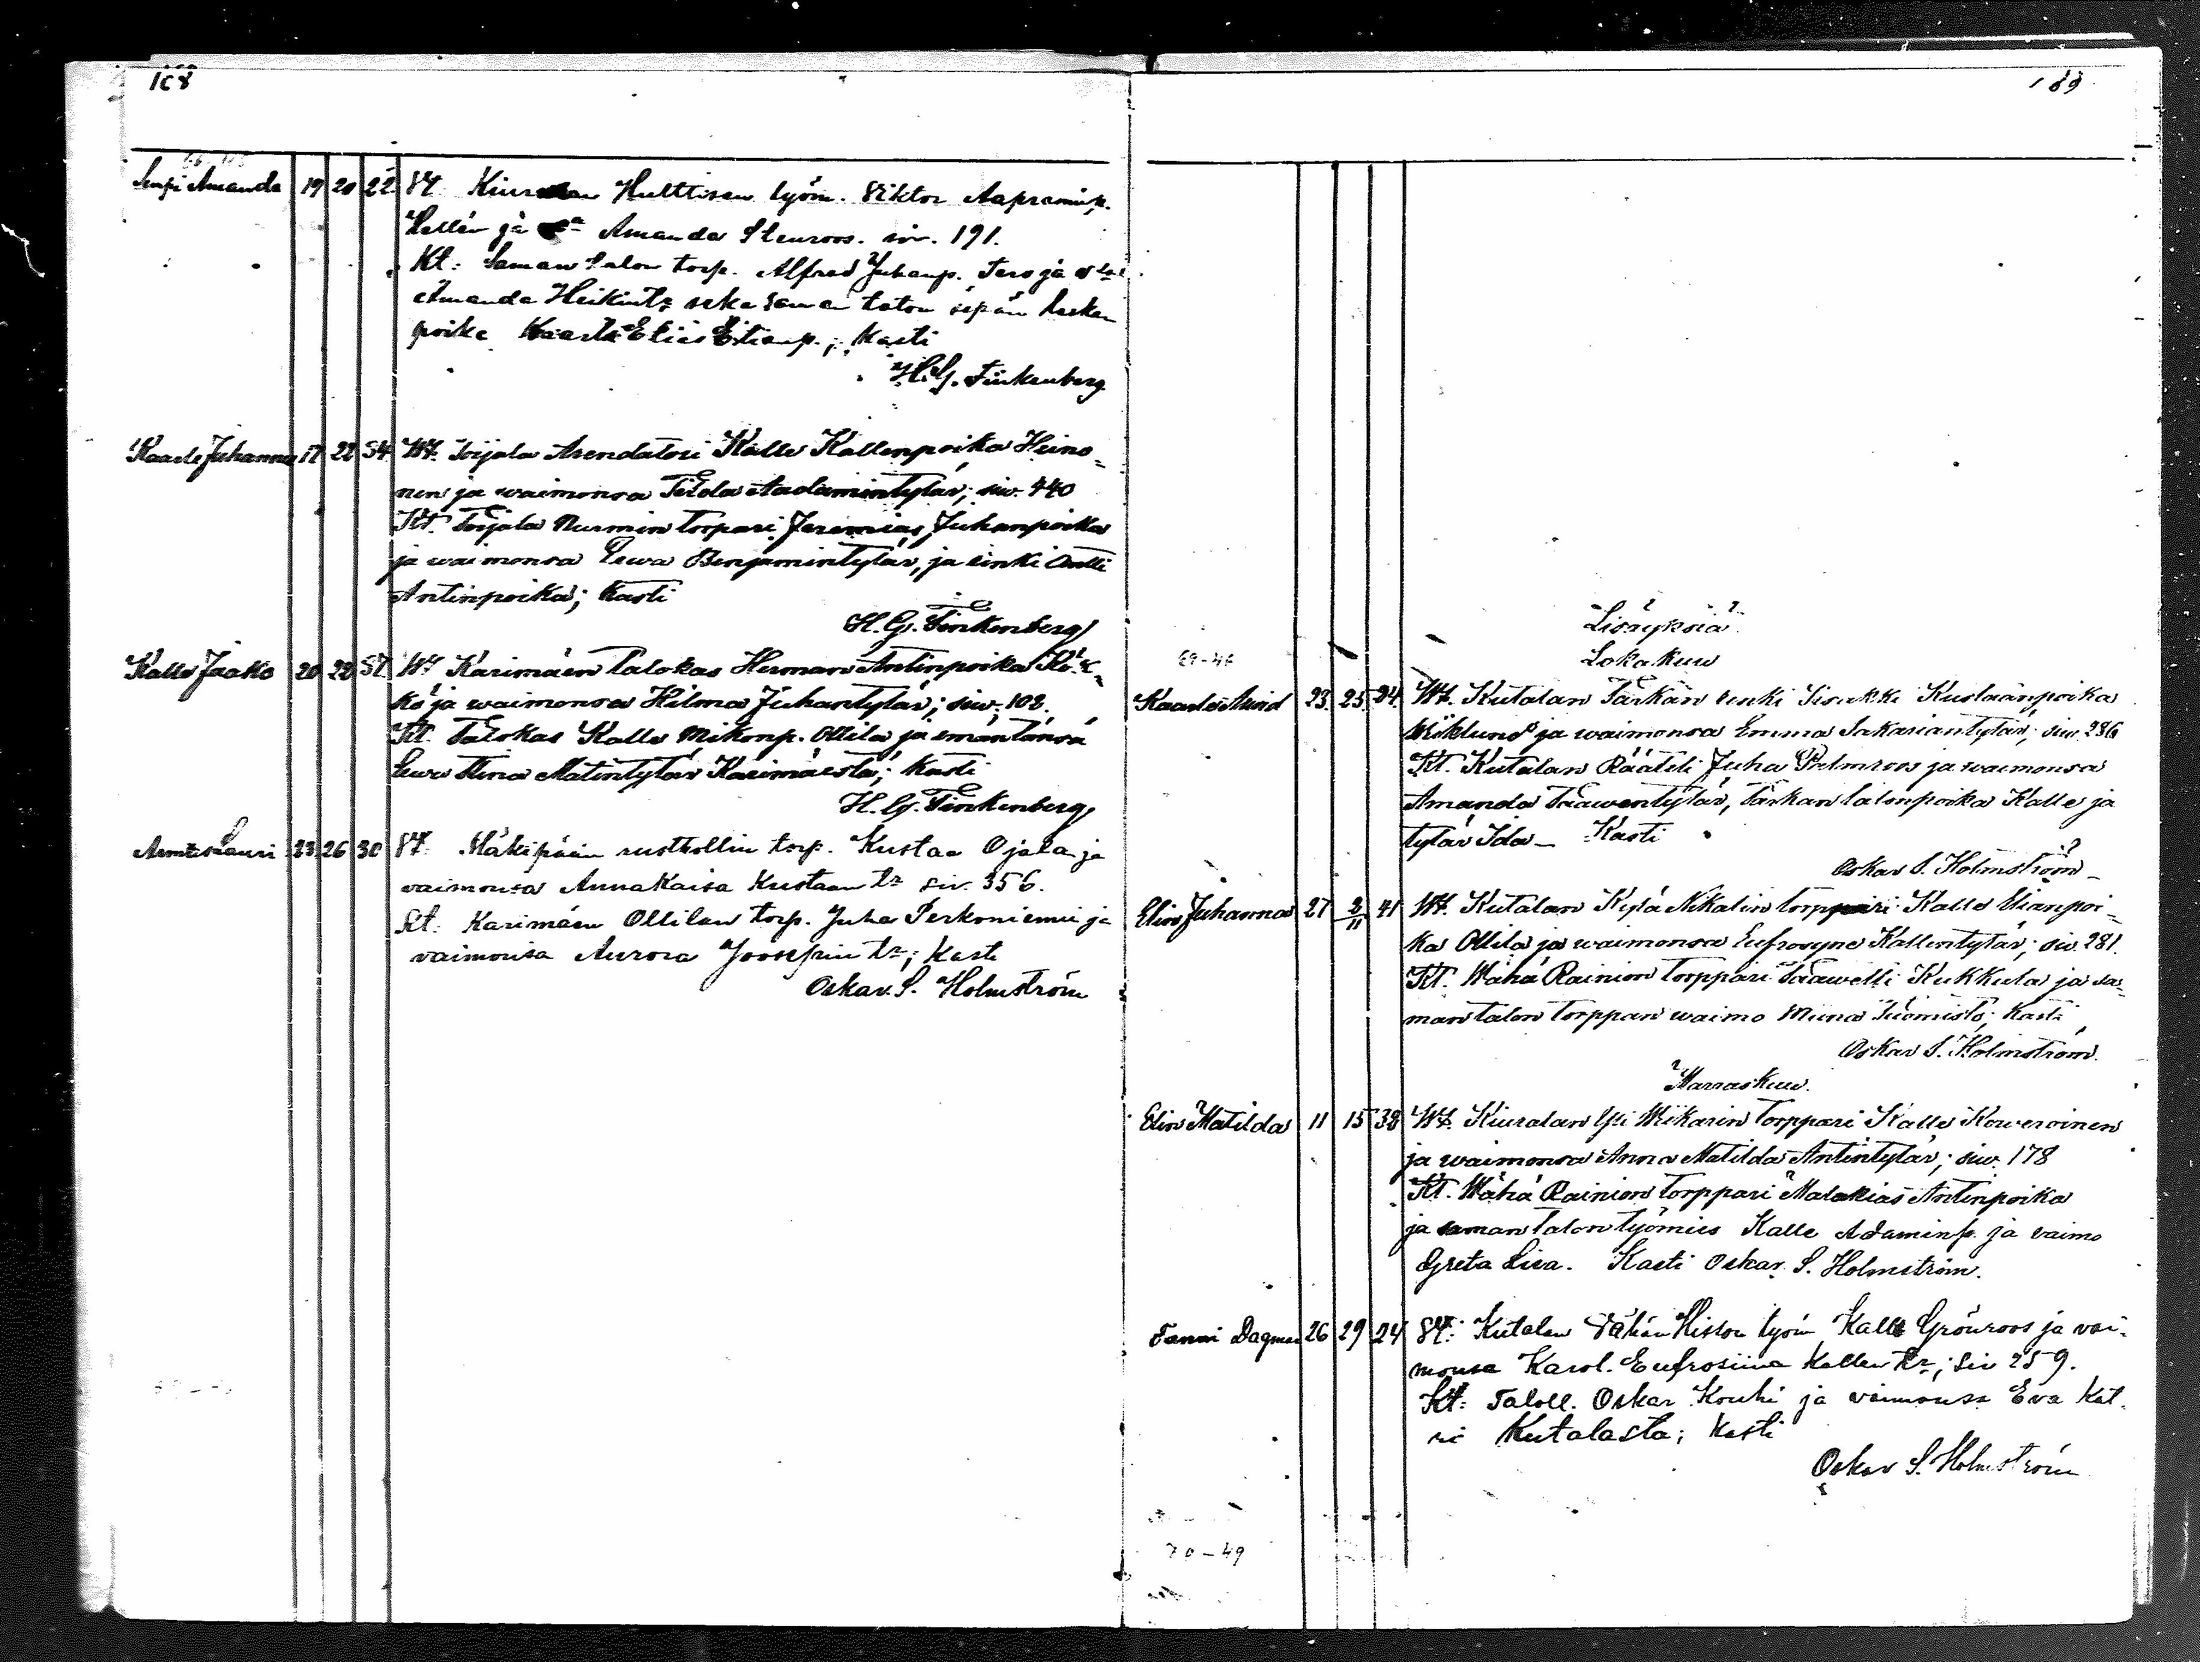 168
Senpi Amanda 19 20 22 Vt. Kiuralan Hulttisen työm. Viktor Aapramip.
Hellén ja Amanda Stenroos. siv. 191.
Kt: Saman talon torp. Alfred Juhanp. Tero ja
Amanda Heikintr seka saman talon sepän
poika Kaarle Elias Elianp.; Kasti
H. G. Finkenberg
Kaarle Juhannes 17 22 54 Wt. Toijala Arendatori Kalle Kallenpoika Heino-
nen ja waimonsa Tilda Aadamintytär; siw. 440
Kt. Toijala Nurmin torpari Jeremias Juhanpoika
ja waimonsa Eewa Benjamintytär, ja renki Antti
Antinpoika; Kasti
H. G. Finkenberg
Kalle Jaako 20 22 57 Wt Karimäen talokas Herman Antinpoika Kö-
kö ja waimonsa Hilma Juhantytär; siw. 102.
Kt. Talokas Kalle Mikonp. Ollila ja emäntänsä
Eewa Stina Matintytär Karimäestä; Kasti
H. G. Finkenberg
Armas Lauri 23 26 30 Vt. Mäkipään rusthollin torp. Kustaa Ojala ja
vaimonsa Anna Kaisa Kustaan tr siv. 356.
Kt: Karimäen Ollilan torp. Juha Perkoniemi ja
vaimonsa Aurora Joosefin tr; Kasti
Oskar S. Holmström
169
Lisäyksiä
Lokakuu
69-46
Kaarle Arvid 23 25 24 Wt. Kutalan Tärkän renki Iisakki Kustaanpoika
Wiklund ja waimonsa Emma Sakariantytär; siw. 286
Kt. Kutalan Räätäli Juha Palmroos ja waimonsa
Amanda Taawentytär, Tärkän talonpoika Kalle ja
tytär Ida – Kasti
Oskar S. Holmström
Elin Juhanna 27 2/11 41 Wt. Kutalan Kylä Nikalin torppari Kalle Elianpoi-
ka Ollila ja waimonsa Eufrosyne Kallentytär; siw. 281.
Kt. Wähä Rainion torppari Taawetti Kukkula ja sa-
man talon torppan waimo Miina Tuomisto; Kasti
Oskar S. Holmström.
Marraskuu.
Elin Matilda 11 15 38 Wt. Kiuralan Yli Wikarin torppari Kalle Koweroinen
ja waimonsa Anna Matilda Antintytär; siw. 178
Kt. Wähä Rainion torppari Malakias Antinpoika
ja saman talon työmies Kalle Adaminp. ja vaimo
Greta Lisa. Kasti Oskar S. Holmström.
Fanni Dagmar 26 29 24 Vt: Kutalan Vähän Hisson työm Kalle Grönroos ja vai-
monsa Karol. Eufrosiina Kallen tr; siv 259.
Kt: Taloll. Oskar Kouhi ja vaimonsa Eva Kat-
ri Kutalasta; Kasti
Oskar S. Holmström
70-49